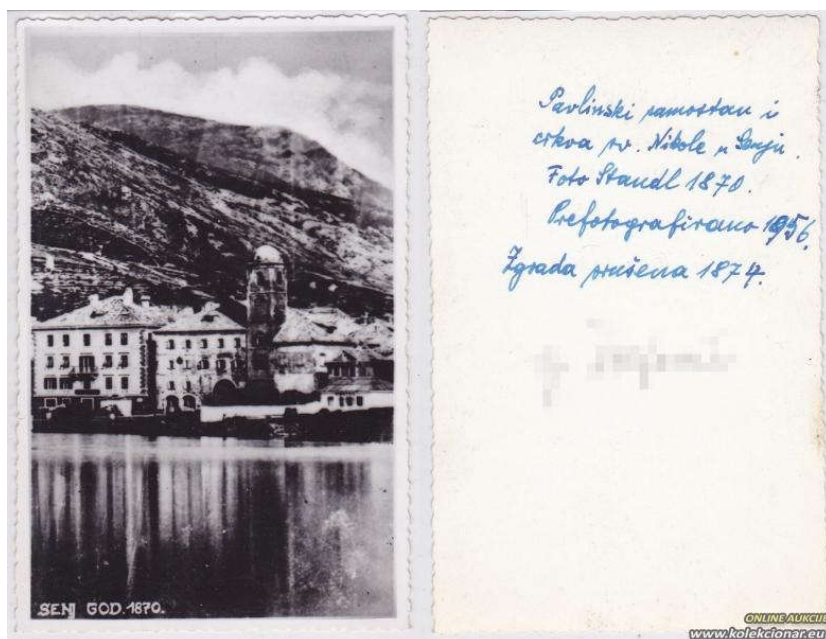 SENJ GOD. 1870.
Pavlinski samostan i
crkva sv. Nikole u Senju.
Foto Standl 1870.
Prefotografirano 1956.
Zgrada srušena 1874.
ONLINE AUKCIJE
www.kolekcionar.eu